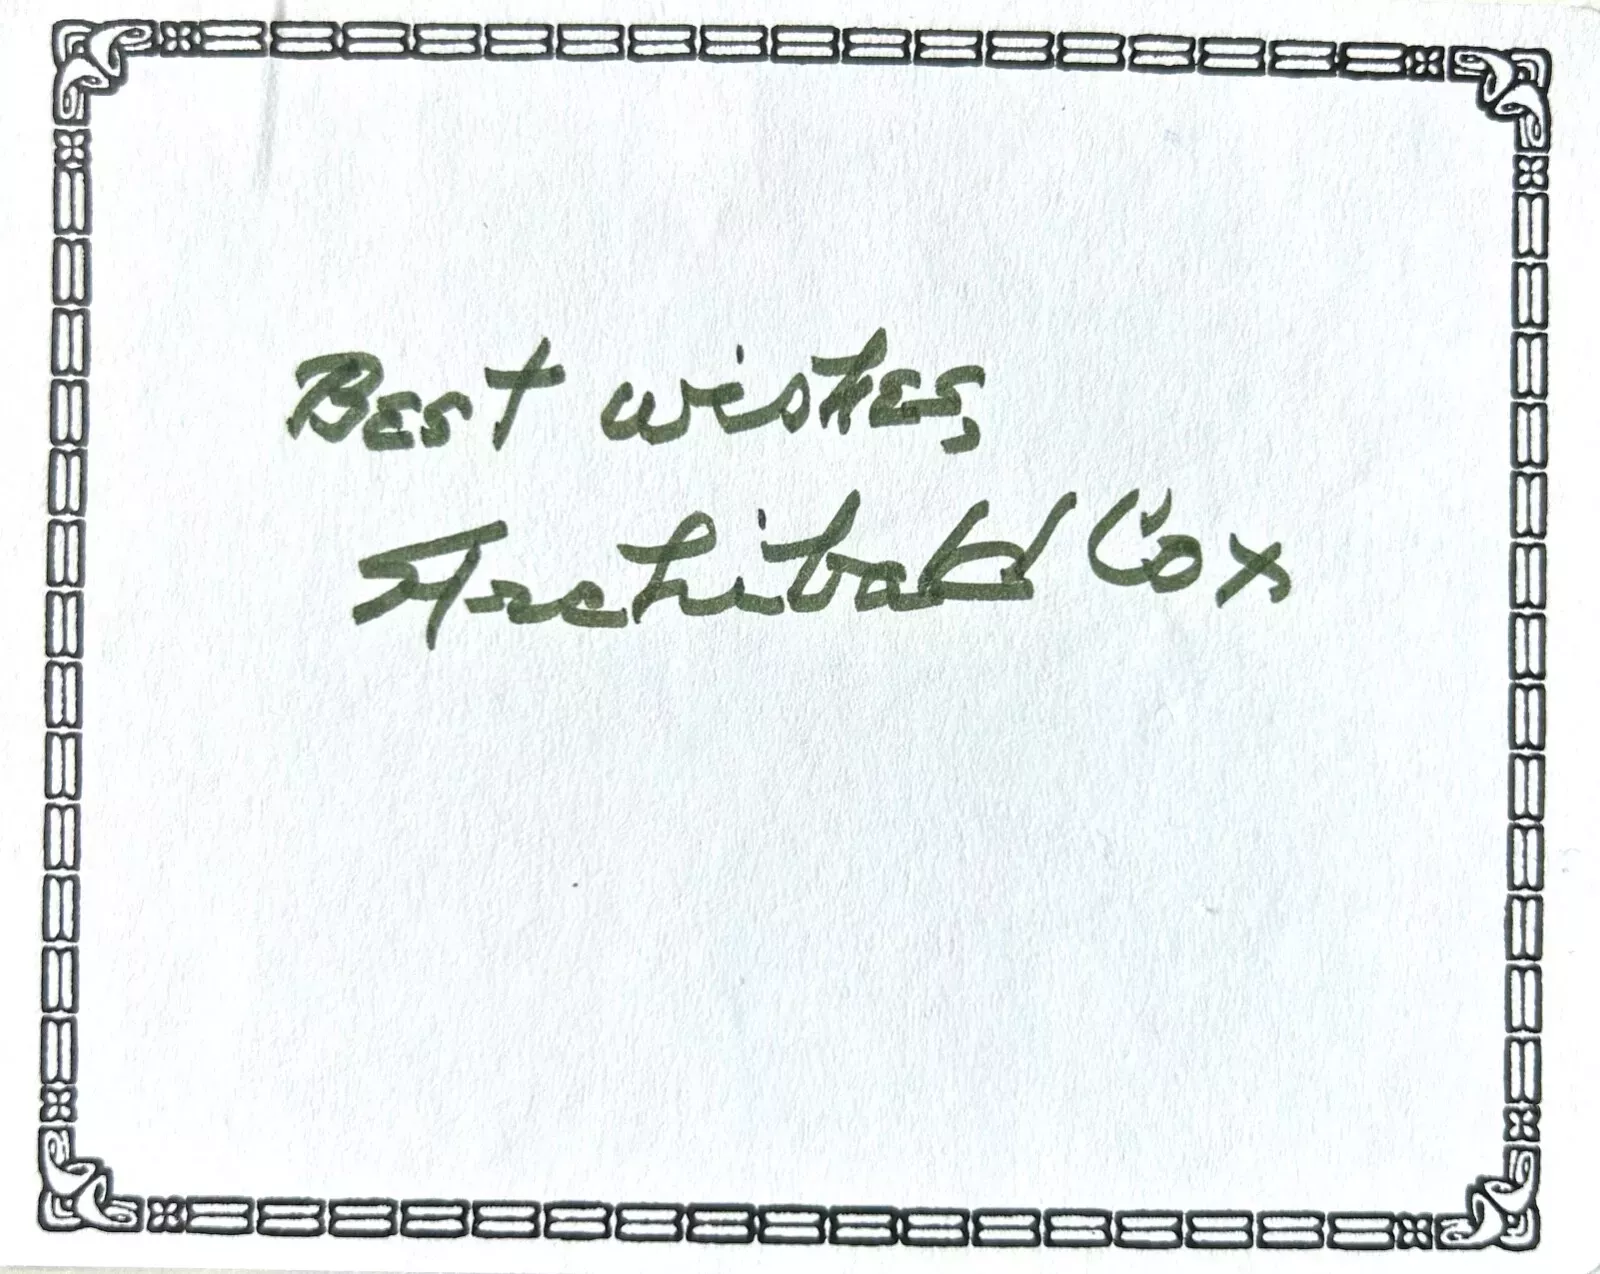 Best wishes,
Archibald Cox